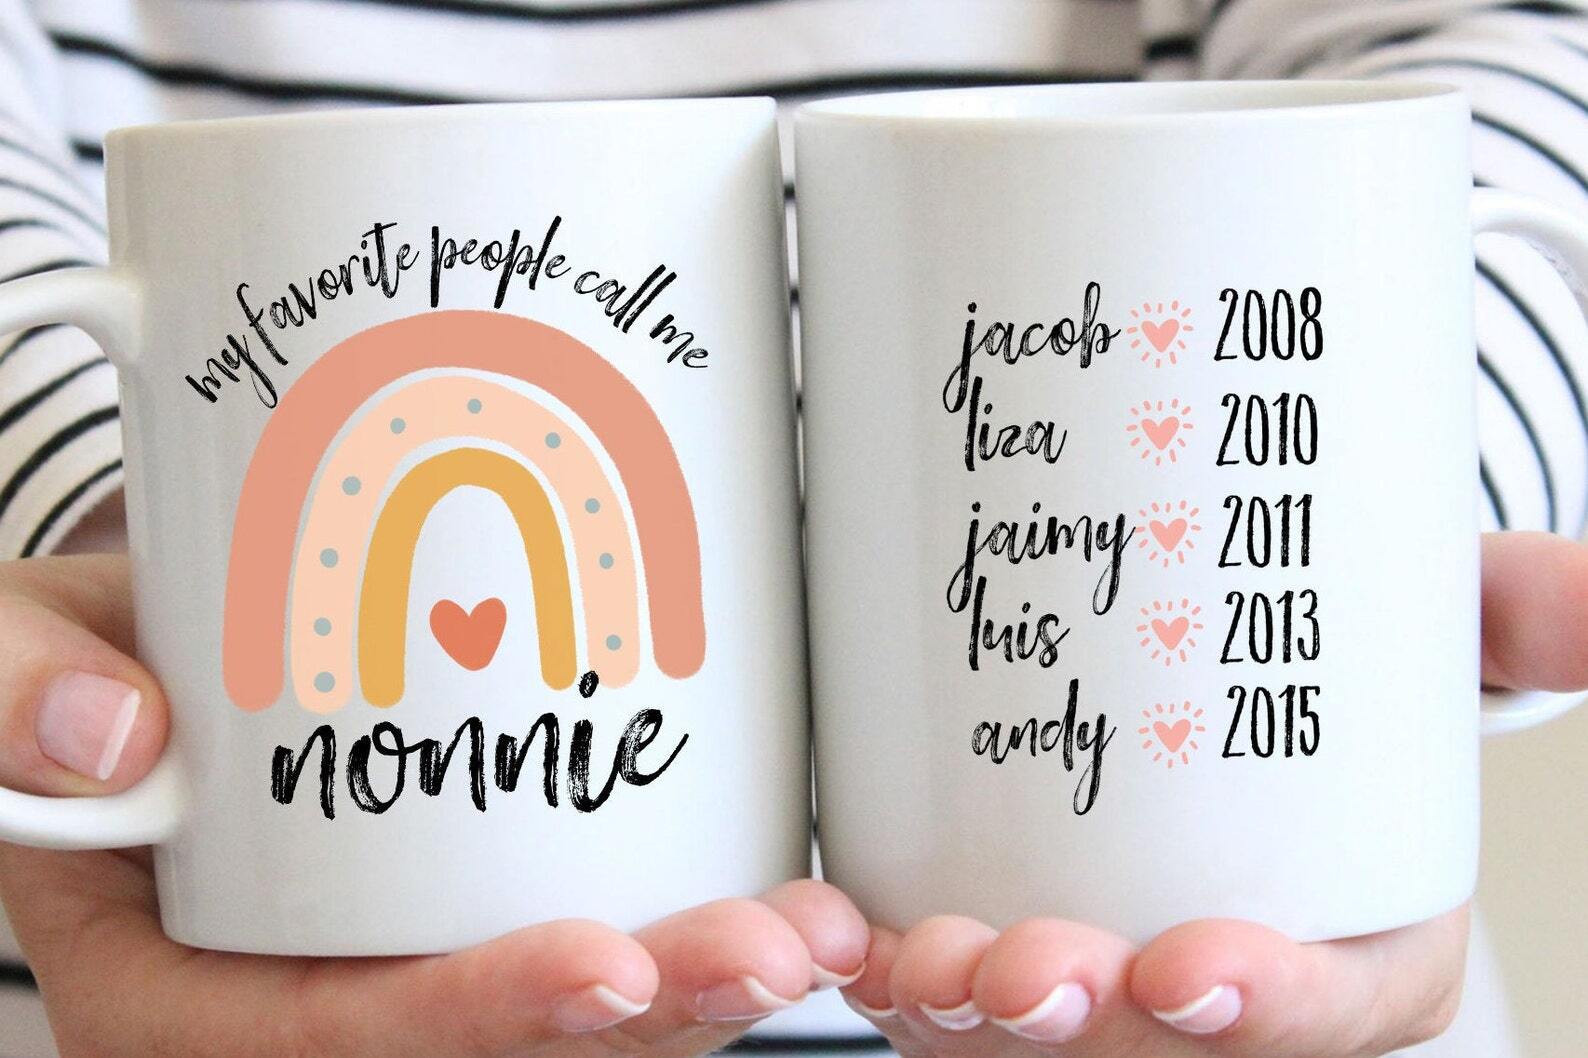 my favorite people call me
nonnie
jacob 2008
liza 2010
jaimy 2011
luis 2013
andy 2015